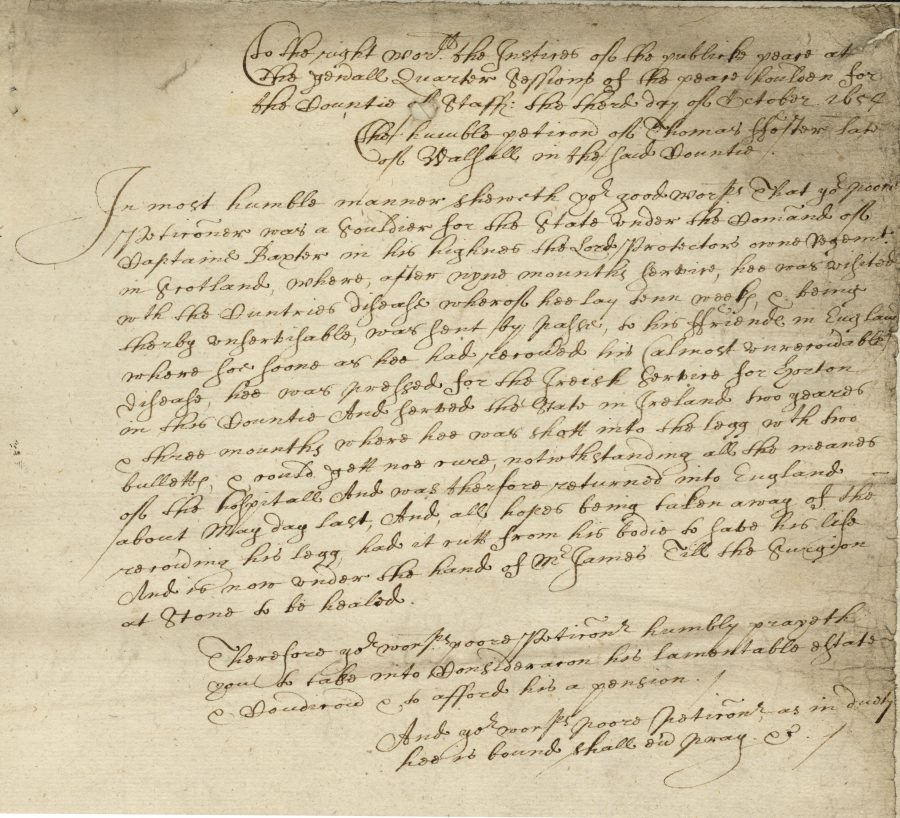 To the right wor:ll the Justices of the publicke peace at
the gen'all Quarter Sessions of the peace houlden for
the Countie of Staff: the third day of October 1654
The humble peticon of Thomas ffoster late
of Walsall in the said Countie.
In most humble manner sheweth yor good wor:ps That yor poore
Peticoner was a Souldier for the State under the Comand of
Captaine Baxter in his highnes the Lord Protectors owne Regemt:
in Scotland, where, after nyne mounths service, hee was visited
wth the Cuntries disease wherof hee lay tenn weekes, & being
therby unservisable, was sent by passe, to his ffriends in England
where soe soone as hee had recov'ed his (almost unrecov'able)
disease, hee was pressed for the Irish Service for
in this Countie And served the State in Ireland two yeares
& three mounths where hee was shott into the legg wth two
bulletts, & could gett noe cure, notwthstanding all the meanes
of the hospitall And was therfore returned into England
about May day last, And, all hopes being taken away of the
recov'ing his legg, had it cutt from his bodie to save his life
And is now under the hand of Mr James Till the Surgion
at Stone to be healed.
Therefore yor wor:ps poore Peticonr humbly prayeth
you to take into Consideracon his lamentable estate
& Condicon & to afford his a pension.
And yor wor:ps poore Peticonr, as in duety
hee is bound shall ev'r pray &c.